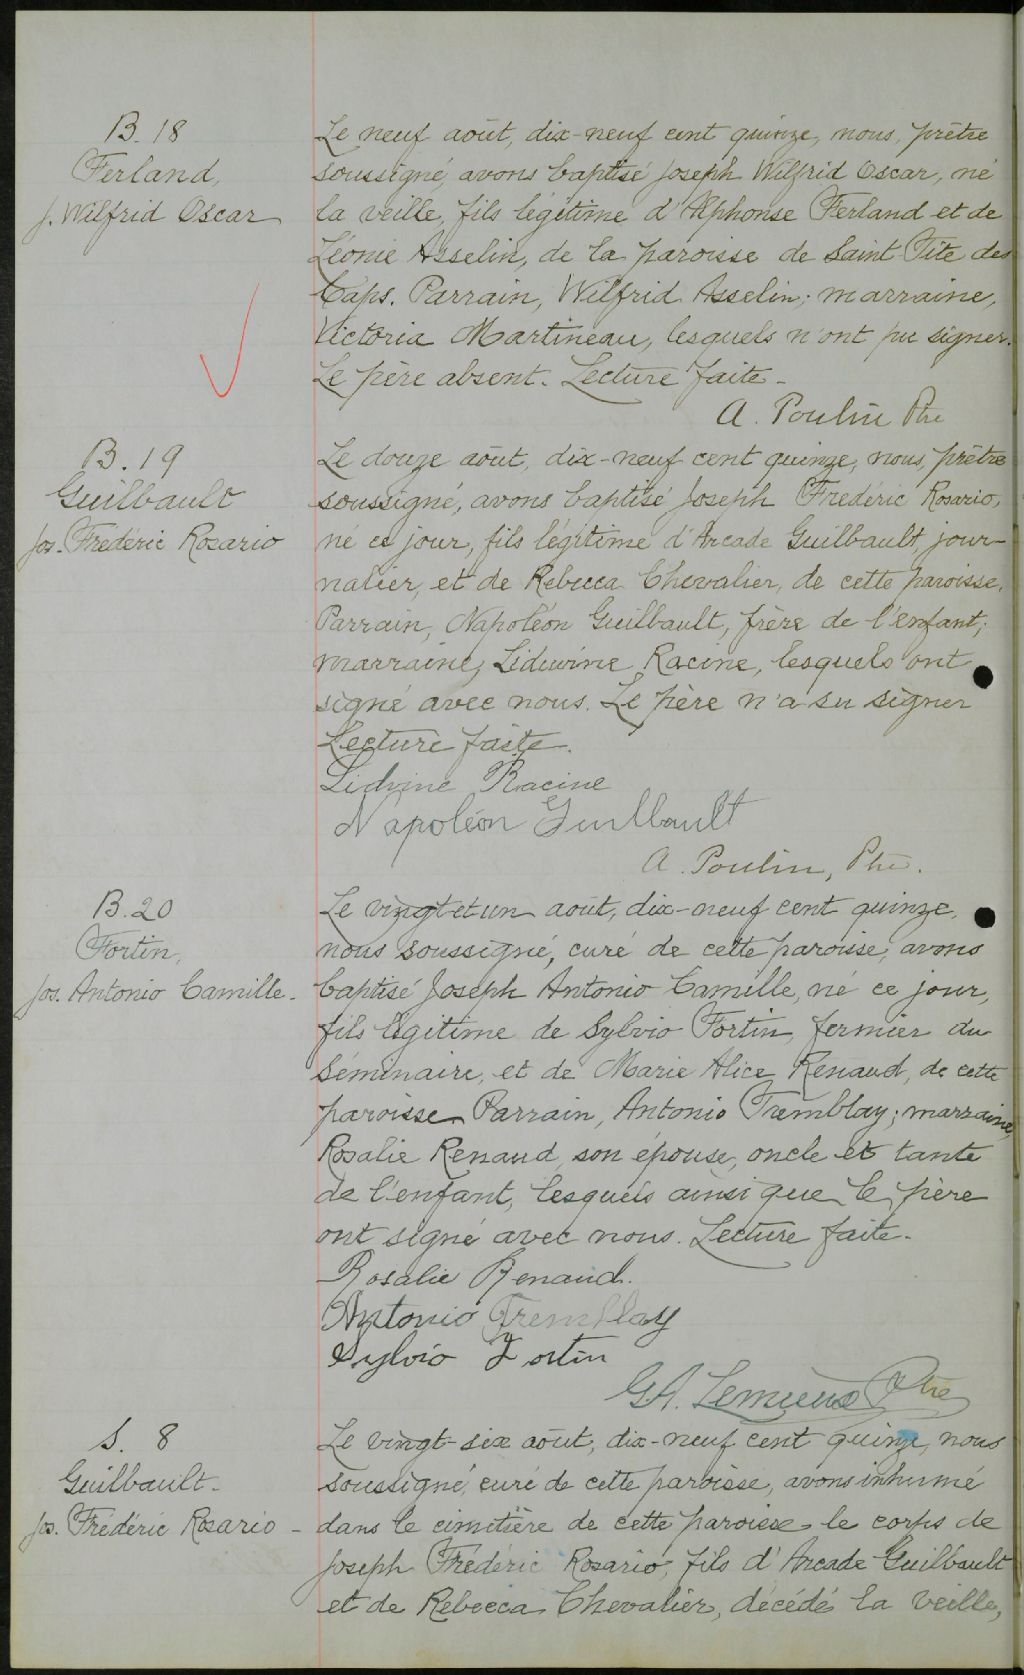 B. 18
Ferland,
J. Wilfrid Oscar
Le neuf août, dix-neuf cent quinze, nous, prêtre
soussigné, avons baptisé Joseph Wilfrid Oscar, né
la veille, fils légitime d'Alphonse Ferland et de
Léonie Asselin, de la paroisse de Saint Tite des
Caps. Parrain, Wilfrid Asselin; marraine,
Victoria Martineau, lesquels n'ont pu signer.
Le père absent. Lecture faite.
A. Poulin Ptre
B. 19
Guilbault
Jos. Frédéric Rosario
Le douze août, dix-neuf cent quinze, nous, prêtre
soussigné, avons baptisé Joseph Frédéric Rosario,
né ce jour, fils légitime d'Arcade Guilbault, jour-
nalier, et de Rebecca Chevalier, de cette paroisse.
Parrain, Napoléon Guilbault, frère de l'enfant;
marraine, Liduvine Racine, lesquels ont
signé avec nous. Le père n'a su signer
Lecture faite.
Lidvine Racine
Napoléon Guilbault
A. Poulin, Ptre.
B. 20
Fortin,
Jos. Antonio Camille.
Le vingt et un août, dix-neuf cent quinze,
nous soussigné, curé de cette paroisse, avons
baptisé Joseph Antonio Camille, né ce jour,
fils légitime de Sylvio Fortin, fermier du
Séminaire, et de Marie Alice Renaud, de cette
paroisse. Parrain, Antonio Tremblay; marraine,
Rosalie Renaud, son épouse, oncle et tante
de l'enfant, lesquels ainsi que le père
ont signé avec nous. Lecture faite.
Rosalie Renaud.
Antonio Tremblay
Sylvio Fortin
G.A. Lemieux Ptre
S. 8
Guilbault.
Jos. Frédéric Rosario -
Le vingt-six août, dix-neuf cent quinze, nous
soussigné, curé de cette paroisse, avons inhumé
dans le cimetière de cette paroisse le corps de
Joseph Frédéric Rosario, fils d'Arcade Guilbault
et de Rebecca Chevalier, décédé la veille,